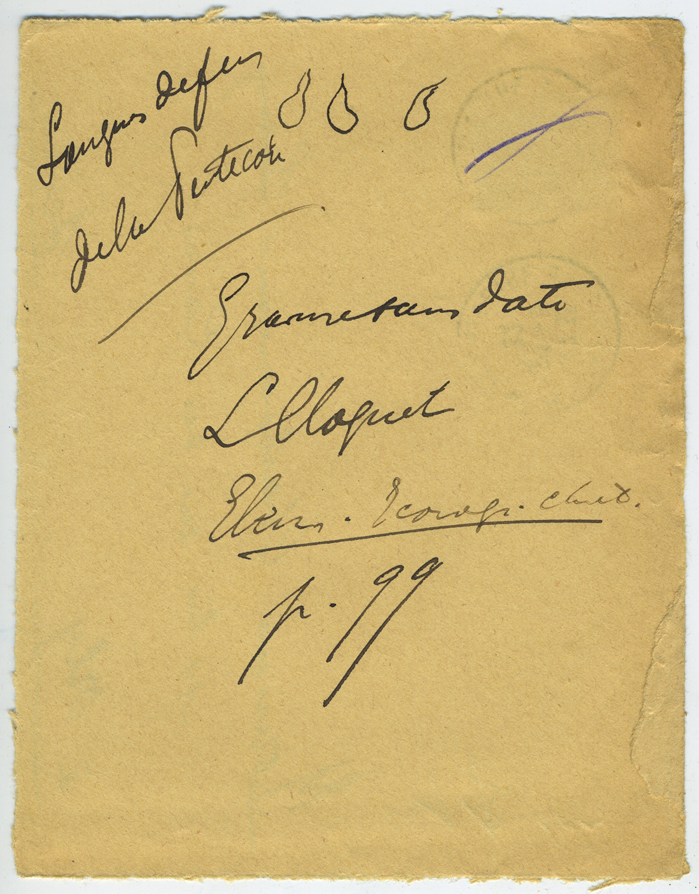 Langues de feu
de la Pentecôte
Gravure sans date
L Cloquet
Elém. Iconogr. chrét.
p. 99